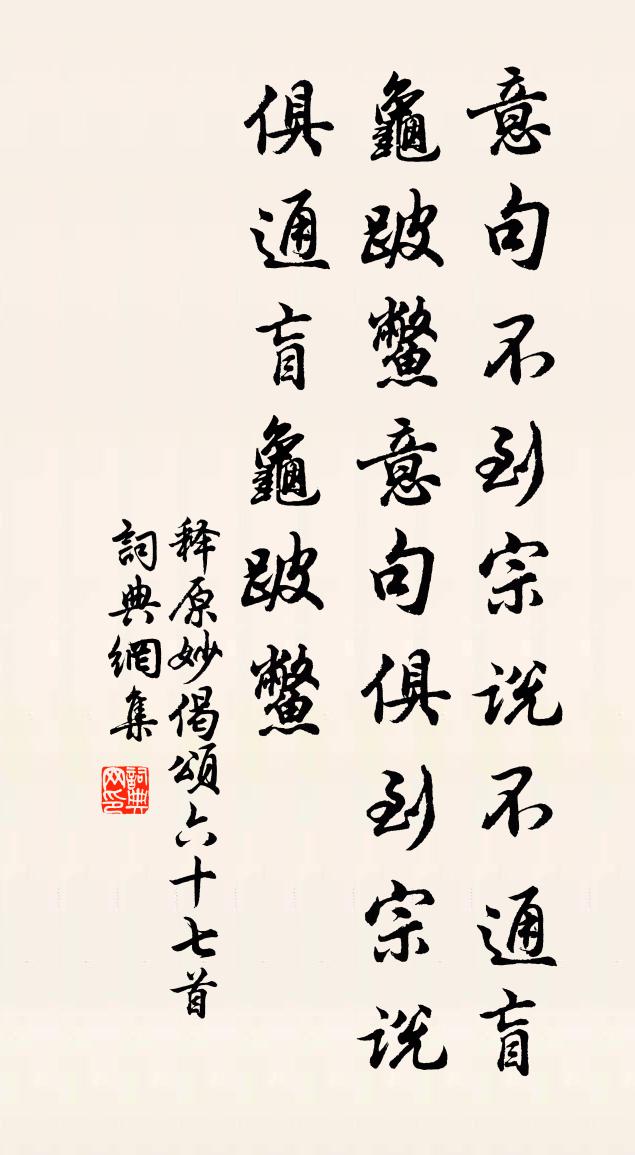 意句不到宗说不通盲
龜跛鱉意句俱到宗说
俱通盲龜跛鱉
释原妙偈頌六十七首
詞典網集
詞典网印